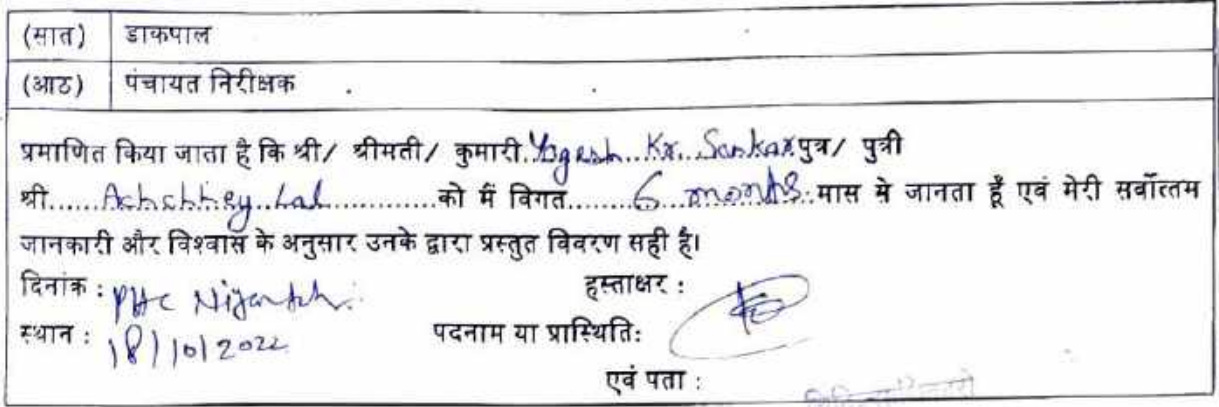 (सात) डाकपाल
(आठ) पंचायत निरीक्षक
प्रमाणित किया जाता है कि श्री/ श्रीमती/ कुमारी Yogesh Kr. Sankar पुत्र/ पुत्री
श्री......Achchhey Lal............को मैं विगत.......6 months. मास से जानता हूँ एवं मेरी सर्वोत्तम
जानकारी और विश्वास के अनुसार उनके द्वारा प्रस्तुत विवरण सही है।
दिनांक : PHC हस्ताक्षर :
स्थान : 18/10/2022 पदनाम या प्रास्थिति:
एवं पता :